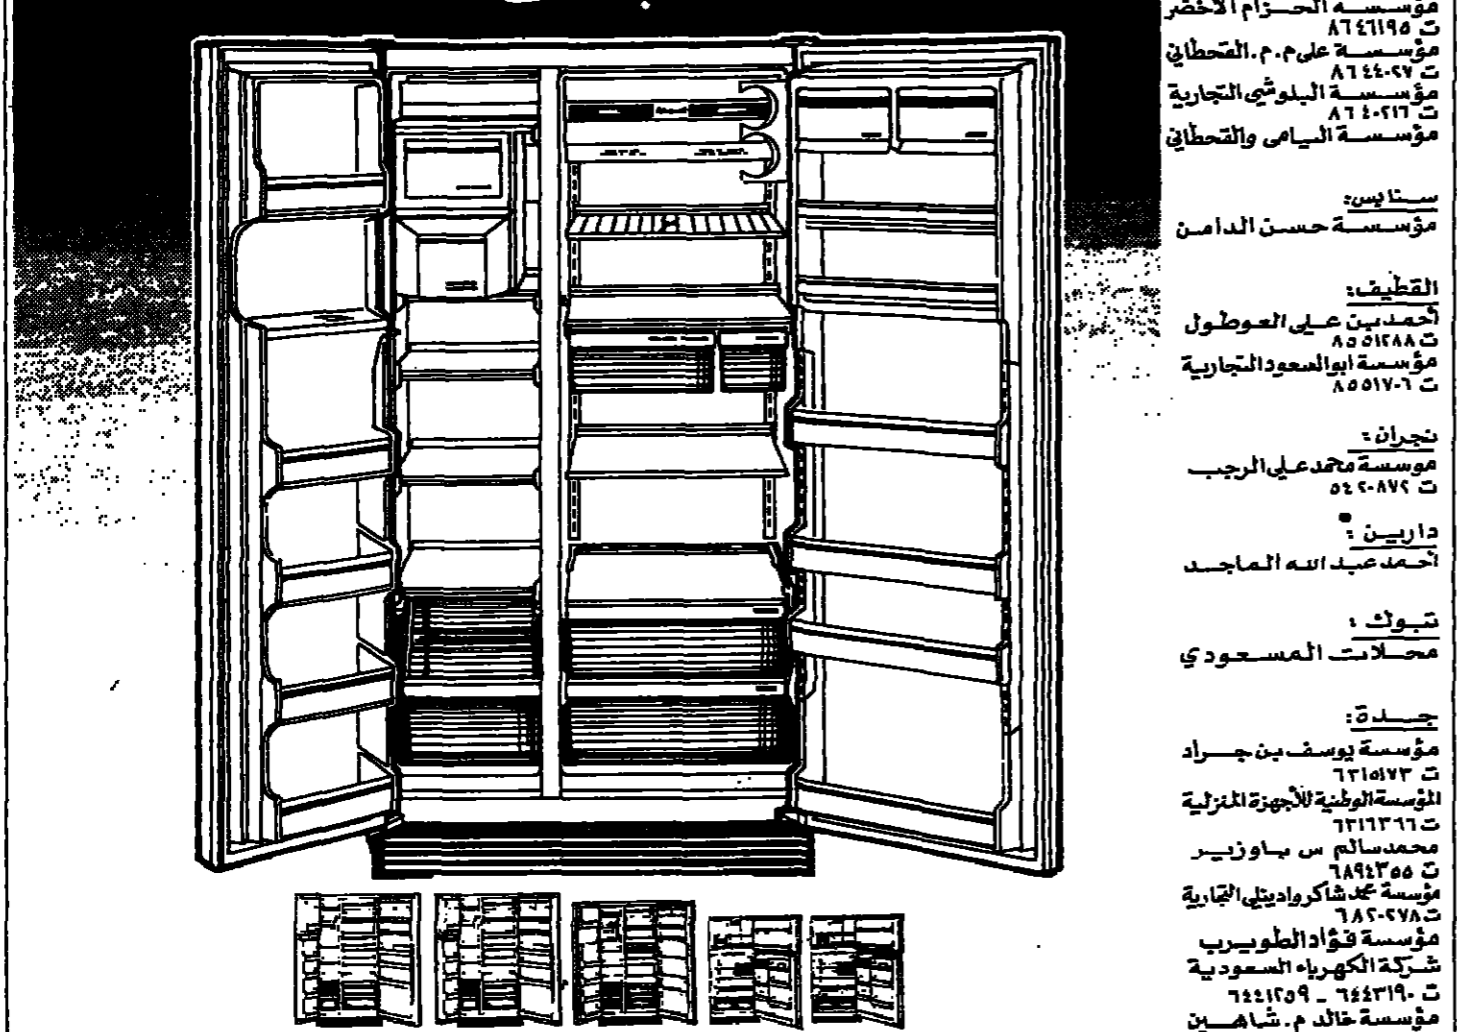 مؤسسة الحزام الأخضر
ت ٨٦٤٦١٩٥
مؤسسة على م. م. القحطاني
ت ٨٦٤٤٠٢٧
مؤسسة البلوشي التجارية
ت ٨٦٤٠٢١٦
مؤسسة اليامى والقحطاني
سنابس:
مؤسسة حسن الدامن
القطيف:
أحمد بن علي العوطول
ت ٨٥٥١٢٨٨
مؤسسة ابو السعود التجارية
ت ٨٥٥١٧٠٦
نجران:
موسسة محمد علي الرجب
ت ٥٤٢٠٨٧٢
داريين:
أحمد عبد الله الماجد
تبوك:
محلات المسعودي
جدة:
مؤسسة يوسف بن جراد
ت ٦٣١٥١٧٣
المؤسسة الوطنية للأجهزة المنزلية
ت ٦٣١٦٣٦٦
محمد سالم س باوزير
ت ٦٨٩٤٣٥٥
مؤسسة محمد شاكر واديني التجارية
ت ٦٨٢٠٢٧٨
مؤسسة فؤاد الطويرب
شركة الكهرباء السعودية
ت ٦٤٤٣١٩٠ - ٦٤٤١٢٥٩
مؤسسة خالد م. شاهين